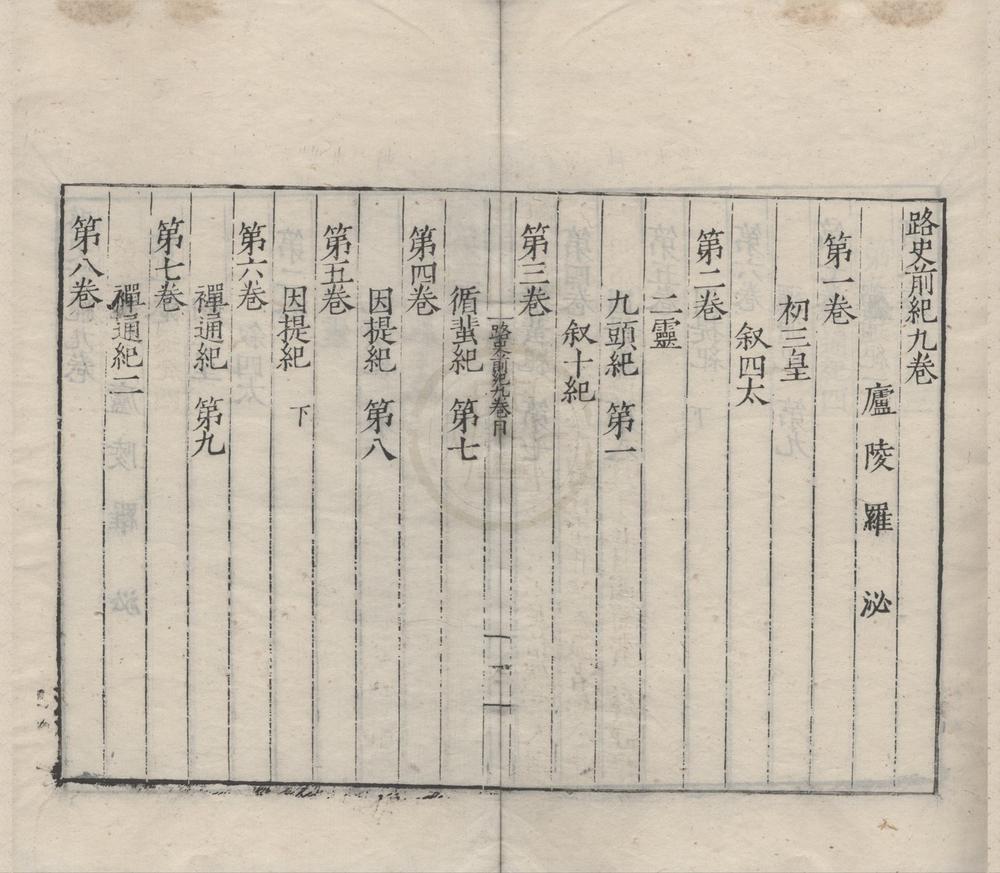 路史前紀九卷
廬陵羅泌
第一卷
初三皇
叙四太
第二卷
二靈
九頭紀 第一
叙十紀
第三卷
路史前紀九卷目 一
循蜚紀 第七
第四卷
因提紀 第八
第五卷
因提紀 下
第六卷
禪通紀 第九
第七卷
禪通紀二
第八卷